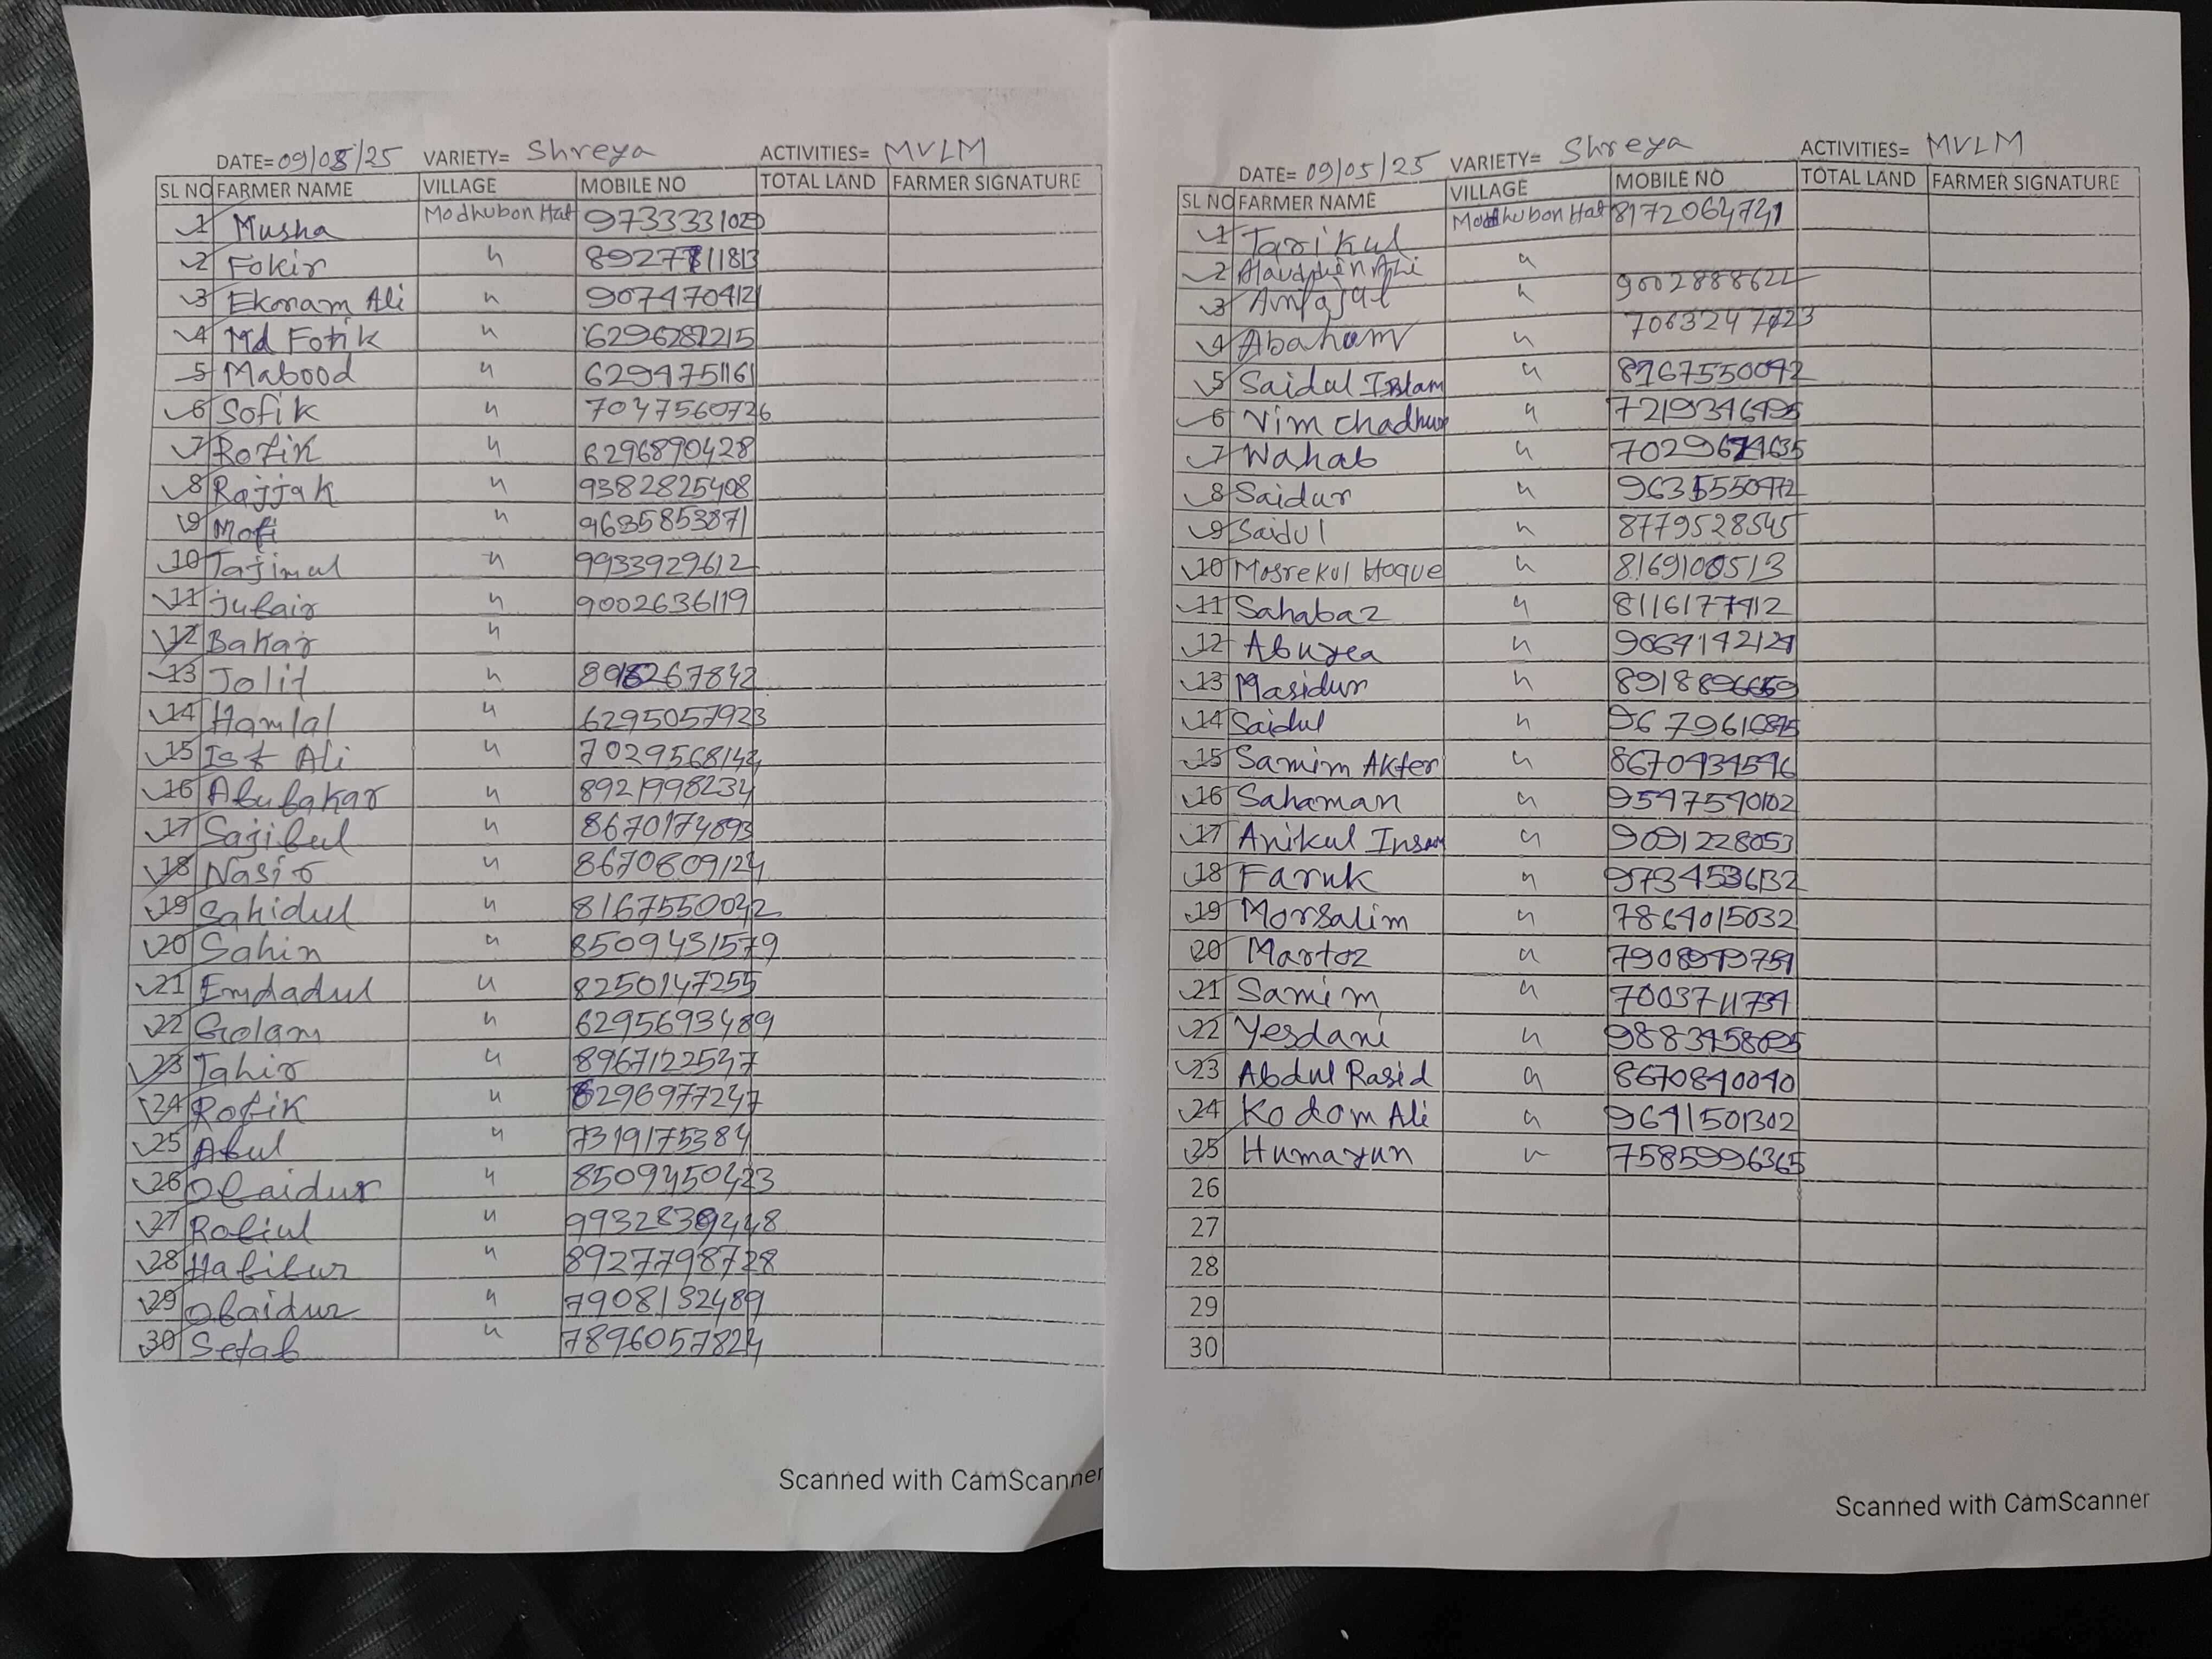 DATE= 09/05/25 VARIETY= Shreya ACTIVITIES= MVLM
SL NO FARMER NAME VILLAGE MOBILE NO TOTAL LAND FARMER SIGNATURE
1 Musha Modhubon Hat 9733331029
2 Fokir " 8927811813
3 Ekoram Ali " 9074704121
4 Md Fotik " 6296282215
5 Mabood " 6294751161
6 Sofik " 7047560726
7 Rofik " 6296890428
8 Rajjak " 9382825408
9 Mofi " 9635853871
10 Tajimul " 9933929612
11 jubair " 9002636119
12 Bakar "
13 Jolil " 8918267842
14 Hamlal " 6295057923
15 Ali " 7029568144
16 Abubakar " 8921998234
17 Sajibul " 8670174893
18 Nasir " 8670609124
19 Sahidul " 8167550042
20 Sahin " 8509431579
21 Emdadul " 8250147255
22 Golam " 6295693489
23 Tahir " 8967122537
24 Rofik " 6296977247
25 Abul " 7319175384
26 Obaidur " 8509450423
27 Robiul " 9932839448
28 Habibur " 8927798728
29 Obaidur " 7908132489
30 Setab " 7896057824
Scanned with CamScanner
DATE= 09/05/25 VARIETY= Shreya ACTIVITIES= MVLM
SL NO FARMER NAME VILLAGE MOBILE NO TOTAL LAND FARMER SIGNATURE
1 Tarikul Modhubon Hat 8172064741
2 Alauddien Ali "
3 Amfajul " 9002888622
4 Abaham " 7063247723
5 Saidul Islam " 8167550042
6 Vim Chadhur " 7219346495
7 Wahab " 7029674635
8 Saidur " 9635550472
9 Saidul " 8779528545
10 Mosrekul Hoque " 8169100513
11 Sahabaz " 8116177412
12 Aburea " 9064142124
13 Masidur " 8918896659
14 Saidul " 9679610845
15 Samim Akter " 8670434546
16 Sahaman " 9547540102
17 Anikul Insan " 9091228053
18 Faruk " 9734536132
19 Morsalim " 7864015032
20 Martoz " 7908949754
21 Samim " 7003711734
22 Yesdani " 9883458095
23 Abdul Rasid " 8670840040
24 Kodom Ali " 9641501302
25 Humayun " 7585996365
26
27
28
29
30
Scanned with CamScanner